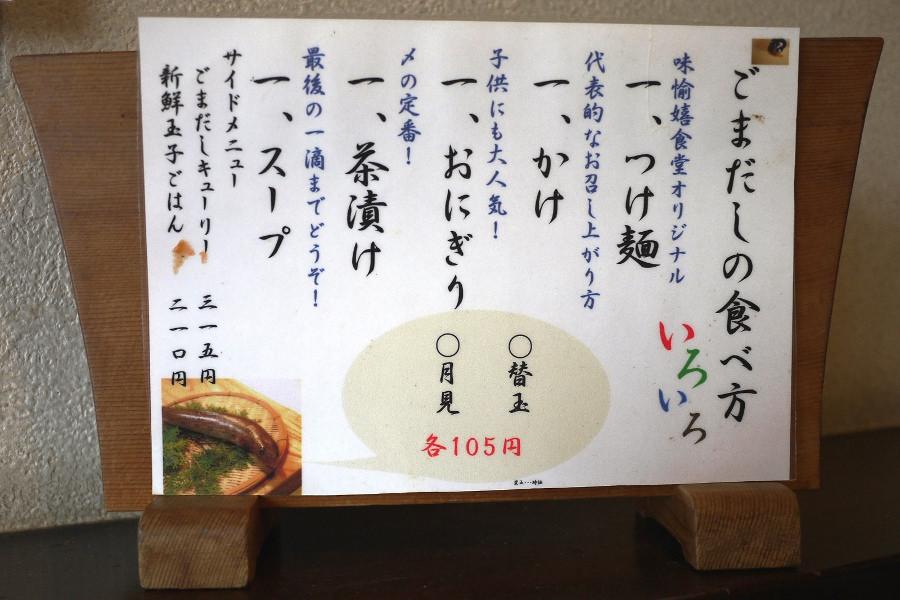 ごまだしの食べ方
いろいろ
味愉嬉食堂オリジナル
一、つけ麺
代表的なお召し上がり方
一、かけ
子供にも大人気！
一、おにぎり
〆の定番！
一、茶漬け
最後の一滴までどうぞ！
一、スープ
サイドメニュー
ごまだしキューリー 三一五円
新鮮玉子ごはん 二一〇円
〇替玉
〇月見
各105円